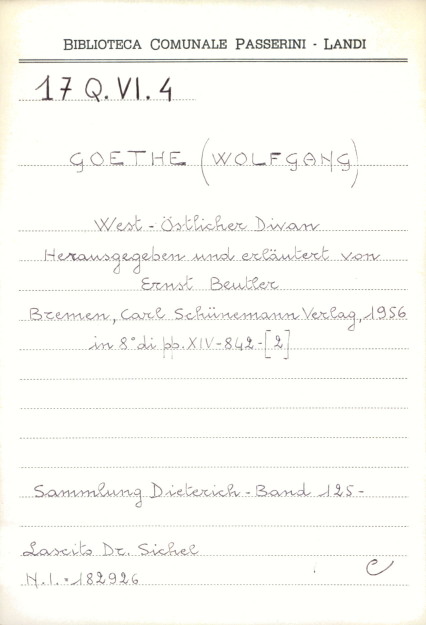 BIBLIOTECA COMUNALE PASSERINI - LANDI
17 Q.VI.4
GOETHE (WOLFGANG)
West-Östlicher Divan
Herausgegeben und erläutert von
Ernst Beutler
Bremen, Carl Schünemann Verlag, 1956
in 8° di pp. XIV-842-[2]
Sammlung Dieterich - Band 125-
Lascito Dr. Sichel
N.I. 182926
e